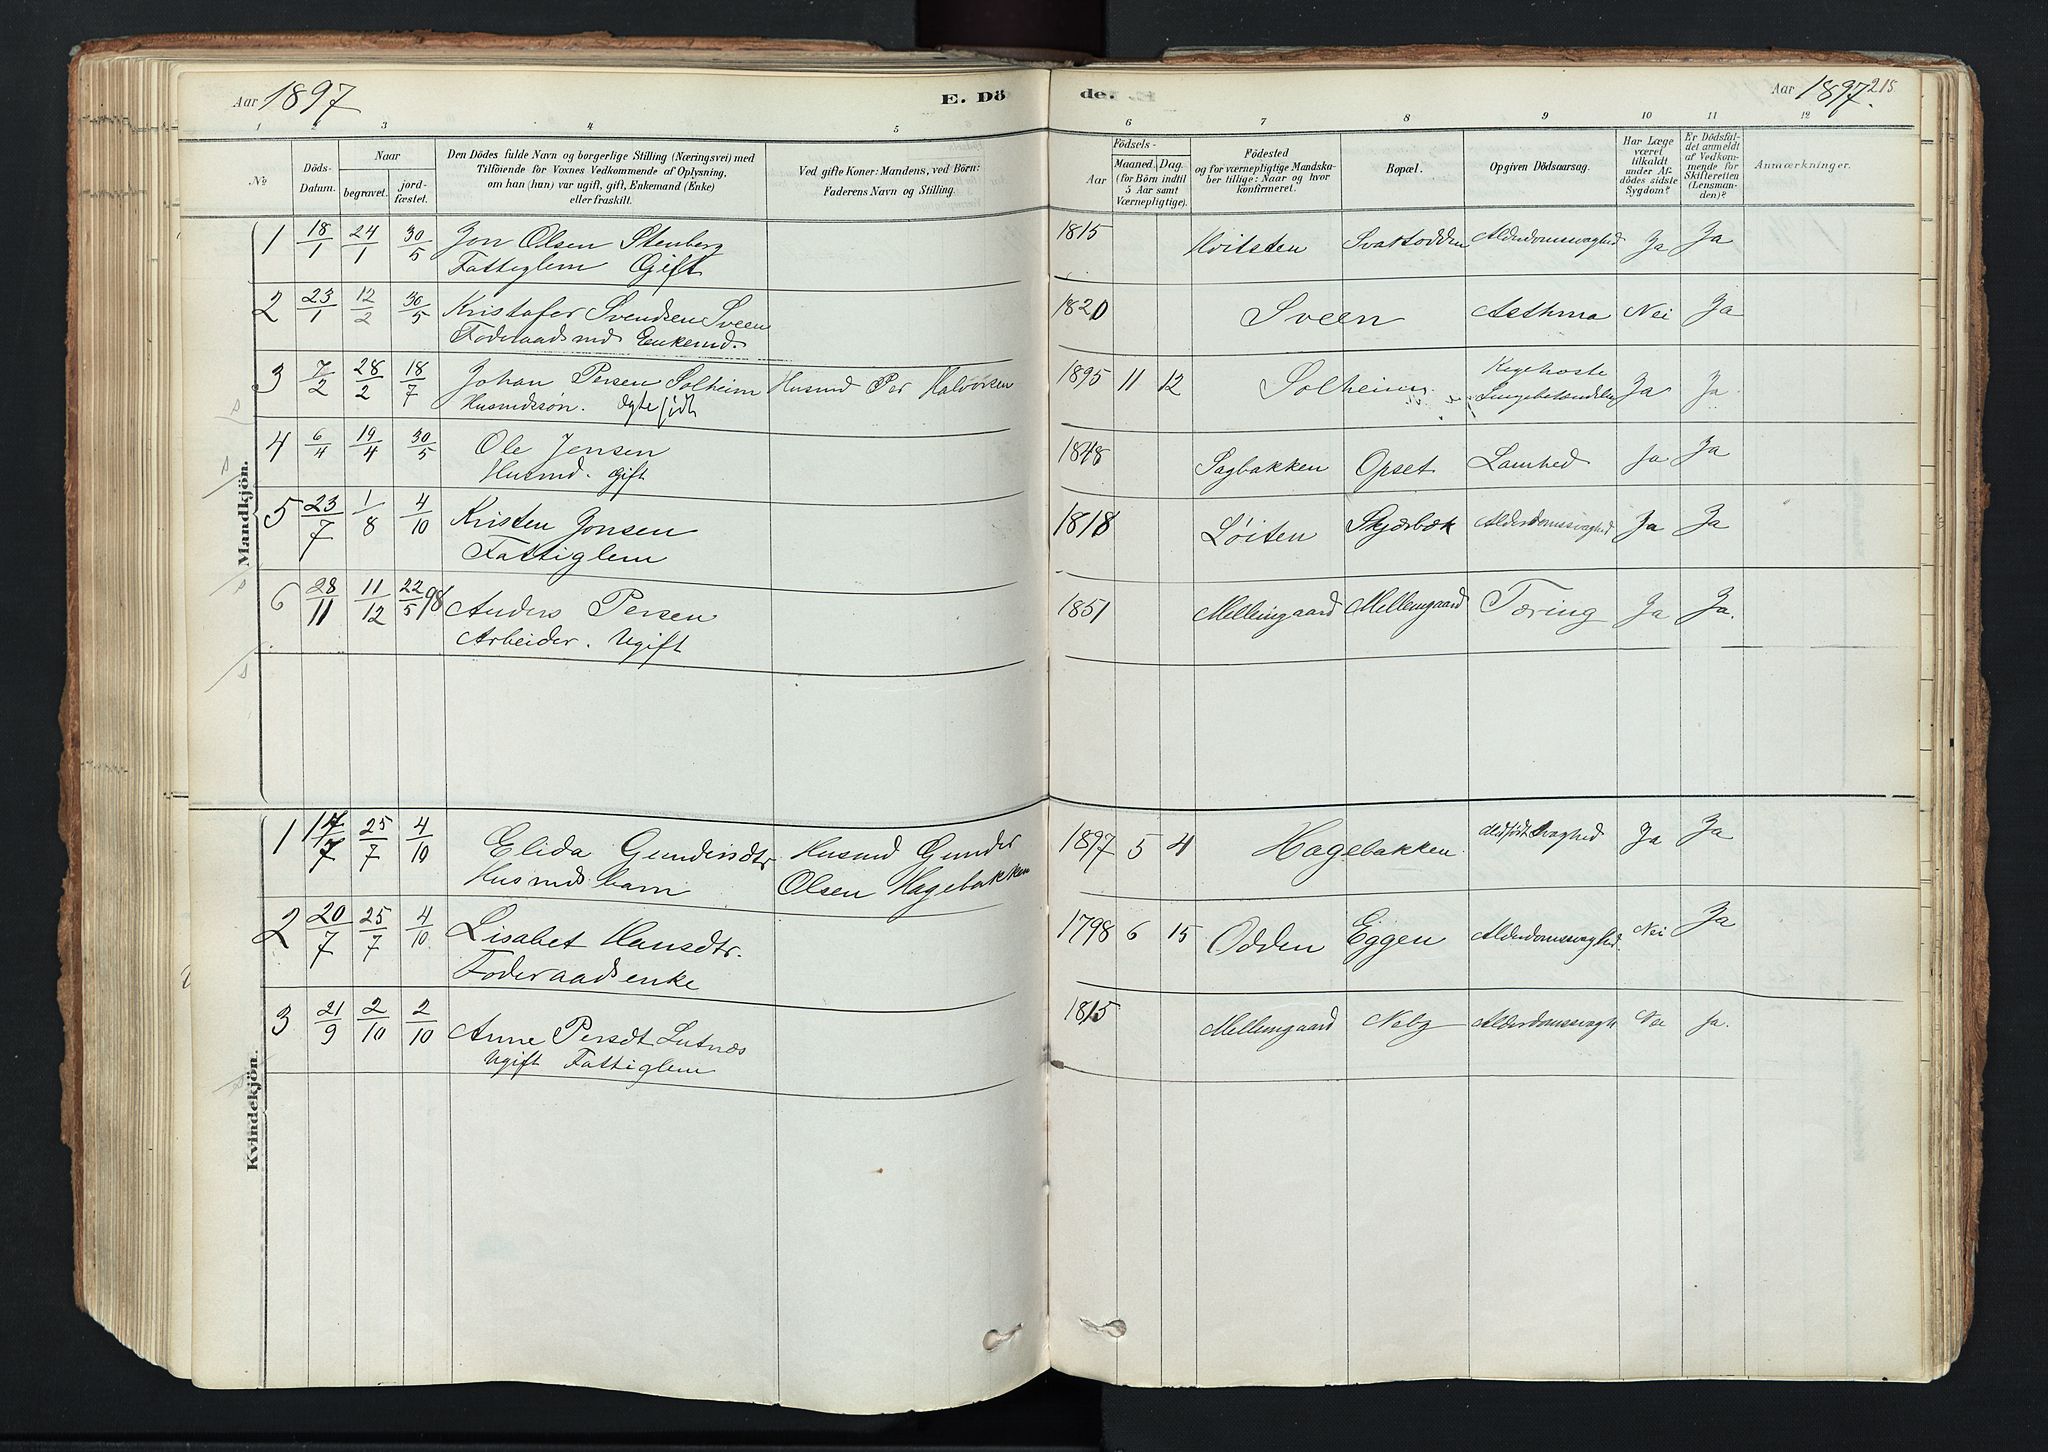 Aar 1897
E. Dö
de.
Aar 1897.
215
1 2 3 4 5 6 7 8 9 10 11 12
No
Döds-
Datum.
Naar
begravet.
jord-
fæstet.
Den Dödes fulde Navn og borgerlige Stilling (Næringsvei) med
Tilföiende for Voxnes Vedkommende af Oplysning,
om han (hun) var ugift, gift, Enkemand (Enke)
eller fraskilt.
Ved gifte Koner: Mandens, ved Börn:
Faderens Navn og Stilling.
Födsels-
Aar
Maaned. Dag.
(for Börn indtil
5 Aar samt
Værnepligtige).
Födested
og for værnepligtige Mandska-
ber tillige: Naar og hvor
konfirmeret.
Bopæl.
Opgiven Dödsaarsag.
Har Læge
været
tilkaldt
under Af-
dödes sidste
Sygdom?
Er Dödsfal-
det anmeldt
af Vedkom-
mende for
Skifteretten
(Lensman-
den)?
Anmærkninger.
Mandkjön.
1 18/1 24/1 30/5 Jon Olsen Stenberg 1815 Hvitsten Svartodden Alderdomssvaghed Ja Ja
Fattiglem Gift
2 23/1 12/2 30/5 Kristofer Svendsen Sveen 1820 Sveen Asthma Nei Ja
Foderaadsmd Enkemd.
3 7/2 28/2 18/7 Johan Persen Solheim Husmd Per Halvorsen 1895 11 12 Solheim Kigehoste Ja Ja
Husmdssøn. Ægtefødt Lungebetændelse
4 6/4 19/4 30/5 Ole Jensen 1848 Sagbakken Opset Lamhed Ja Ja
Husmd. gift
5 23/7 1/8 4/10 Kristen Jonsen 1818 Løiten Skjærbæk Alderdomssvaghed Ja Ja
Fattiglem
6 28/11 11/12 22/5 98 Anders Persen 1851 Mellemgaard Mellemgaard Tæring Ja Ja.
Arbeider. Ugift
Kvindekjön.
1 17/7 25/7 4/10 Elida Gundersdtr Husmd Gunder 1897 5 4 Hagebakken Medfødt Svaghed Ja Ja
Husmdsbarn Olsen Hagebakken
2 20/7 25/7 4/10 Lisabet Hansdtr. 1798 6 15 Odden Eggen Alderdomssvaghed. Nei Ja
Foderaadsenke
3 21/9 2/10 2/10 Anne Persdt Lutnæs 1815 Mellemgaard Neby Alderdomssvagh Nei Ja.
Ugift Fattiglem